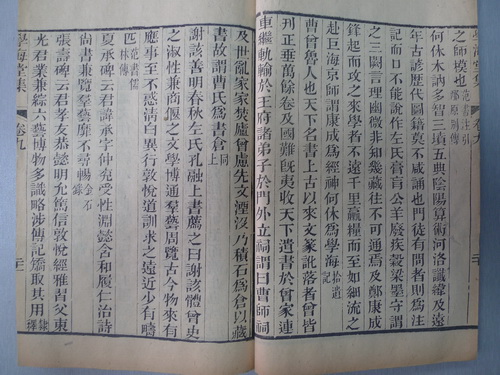 之師模也 范書注引邴原別傳
何休木訥多智三墳五典陰陽算術河洛讖緯及遠
年古諺歷代圖籍莫不咸誦也門徒有問者則爲注
記而口不能說作左氏膏肓公羊廢疾穀梁墨守謂
之三闕言理幽微非知幾藏往不可通焉及鄭康成
鋒起而攻之來學者不遠千里羸糧而至如細流之
赴巨海京師謂康成爲經神何休爲學海 拾遺記
曹曾魯人也天下名書上古以來文篆訛落者曾皆
刊正垂萬餘卷及國難旣夷收天下遺書於曾家連
車繼軌輸於王府諸弟子於門外立祠謂曰曹師祠
及世亂家家焚廬曾慮先文湮沒乃積石爲倉以藏
書故謂曹氏爲書倉 上同
謝該善明春秋左氏孔融上書薦之曰謝該體曾史
之淑性兼商偃之文學博通羣藝周覽古今物來有
應事至不惑清白異行敦悅道訓求之遠近少有疇
匹 范書儒林傳
夏承碑云君諱承字仲兗受性淵懿含和履仁治詩
尚書兼覽羣藝靡不尋暢 金石
張壽碑云君孝友恭懿明允篤信敦悅經雅習父東
光君業兼綜六藝博物多識略涉傳記矯取其用 隸釋
學海堂集
卷九